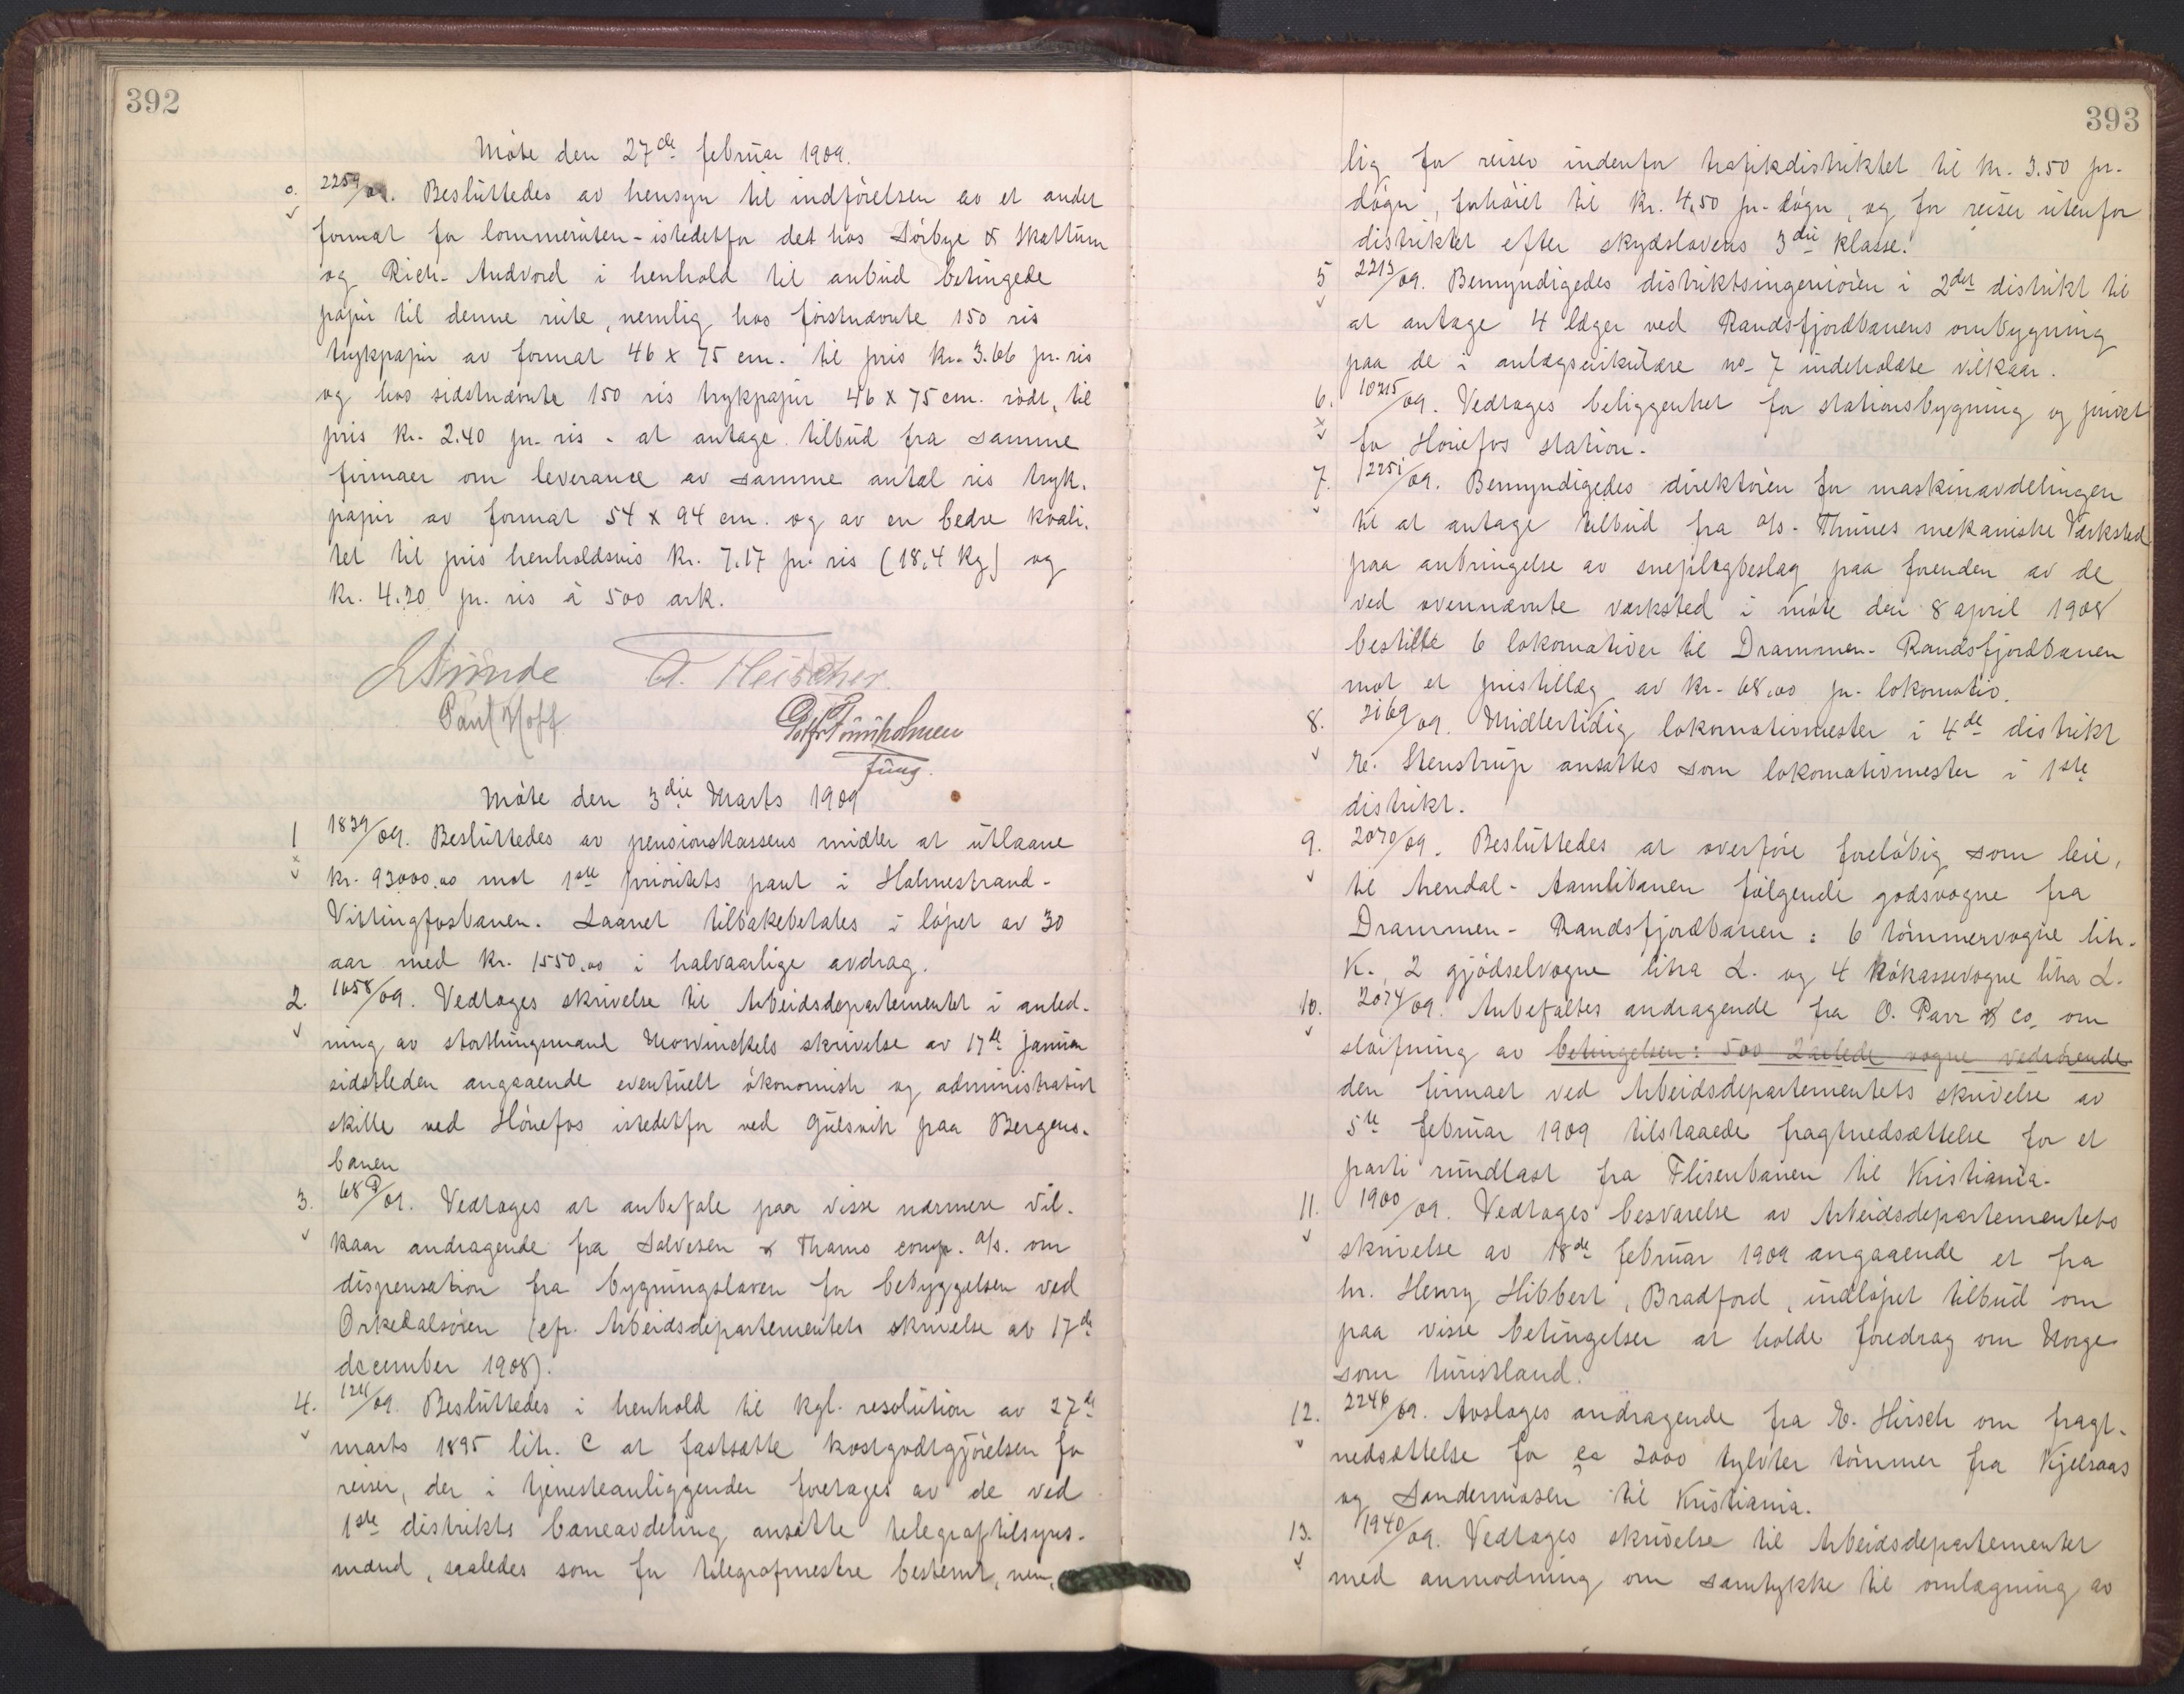 392
Møte den 27de februar 1909.
o. 2259/09. Besluttedes av hensyn til indførelsen av et andet
format for lommeruten - istedetfor det hos Sørbye & Skattum
og Rich. Andvord i henhold til anbud betingede
papir til denne rute, nemlig hos førstnævnte 150 ris
trykpapir av format 46 x 75 cm. til pris kr. 3.66 pr. ris
og hos sidstnævnte 150 ris trykpapir 46 x 75 cm. rødt, til
pris kr. 2.40 pr. ris - at antage tilbud fra samme
firmaer om leverance av samme antal ris tryk-
papir av format 54 x 94 cm. og av en bedre kvali-
tet til pris henholdsvis kr. 7.17 pr. ris (18,4 kg) og
kr. 4.20 pr. ris à 500 ark.
A. Fleischer.
Paul Hoff
fung.
Møte den 3die Marts 1909
1 1839/09. Besluttedes av pensionskassens midler at utlaane
kr. 93000.00 mot 1ste prioritets pant i Holmestrand-
Vittingfosbanen. Laanet tilbakebetales i løpet av 30
aar med kr. 1550.00 i halvaarlige avdrag.
2. 1658/09. Vedtages skrivelse til Arbeidsdepartementet i anled-
ning av stortingsmand Mowinckels skrivelse av 17de januar
sidstleden angaaende eventuelt økonomisk og administrativt
skille ved Hønefos istedetfor ved Gulsvik paa Bergens-
banen
3. 68/09. Vedtages at anbefale paa visse nærmere vil-
kaar andragende fra Salvesen & Thams comp. a/s. om
dispensation fra bygningsloven for bebyggelsen ved
Orkedalsøren (cfr. Arbeidsdepartementets skrivelse av 17de
december 1908).
4. 1211/09. Besluttedes i henhold til kgl. resolution av 27de
marts 1895 litr. C at fastsætte kostgodtgjørelsen for
reiser, der i tjenesteanliggender foretages av de ved
1ste distrikts baneavdeling ansatte telegraftilsyns-
mænd, saaledes som for telegrafmestre bestemt, nem-
393
lig for reiser indenfor trafikdistriktet til kr. 3.50 pr.
døgn, forhøiet til kr. 4,50 pr. døgn, og for reiser utenfor
distriktet efter skydslovens 3die klasse.
5 2213/09. Bemyndigedes distriktsingeniøren i 2det distrikt til
at antage 4 læger ved Randsfjordbanens ombygning
paa de i anlægscirkulære no. 7 indeholdte vilkaar.
6. 10215/09. Vedtages beliggenhet for stationsbygning og privet
for Hønefos station.
7. 12251/09. Bemyndigedes direktøren for maskinavdelingen
til at antage tilbud fra a/s. Thunes mekaniske Værksted
paa anbringelse av sneplogbeslag paa forenden av de
ved ovennævnte værksted i møte den 8 april 1908
bestilte 6 lokomotiver til Drammen-Randsfjordbanen
mot et pristillæg av kr. 68.00 pr. lokomotiv.
8. 2169/09. Midlertidig lokomotivmester i 4de distrikt
E. Stenstrup ansattes som lokomotivmester i 1ste
distrikt.
9. 2070/09. Besluttedes at overføre foreløbig som leie,
til Arendal-Aamlibanen følgende godsvogne fra
Drammen-Randsfjordbanen: 6 tømmervogne litr.
K., 2 gjødselvogne litra L. og 4 kokassevogne litra L.
10. 2074/09. Anbefaltes andragende fra O. Parr & Co. om
sløifning av betingelsen: 500 2 axlede vogne vedrørende
den firmaet ved Arbeidsdepartementets skrivelse av
5te februar 1909 tilstaaede fragtnedsættelse for et
parti rundlast fra Flisenbanen til Kristiania.
11. 1900/09. Vedtages besvarelse av Arbeidsdepartementets
skrivelse av 18de februar 1909 angaaende et fra
hr. Henry Hibbert, Bradford, indløpet tilbud om
paa visse betingelser at holde foredrag om Norge
som turistland.
12. 2246/09. Avslages andragende fra E. Hirsch om fragt-
nedsættelse for ca 2000 tylvter tømmer fra Kjelsaas
og Sandermosen til Kristiania.
13. 1940/09. Vedtages skrivelse til Arbeidsdepartementet
med anmodning om samtykke til omlægning av